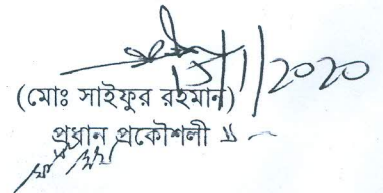 ১৩/১/২০২০
(মোঃ সাইফুর রহমান)
প্রধান প্রকৌশলী